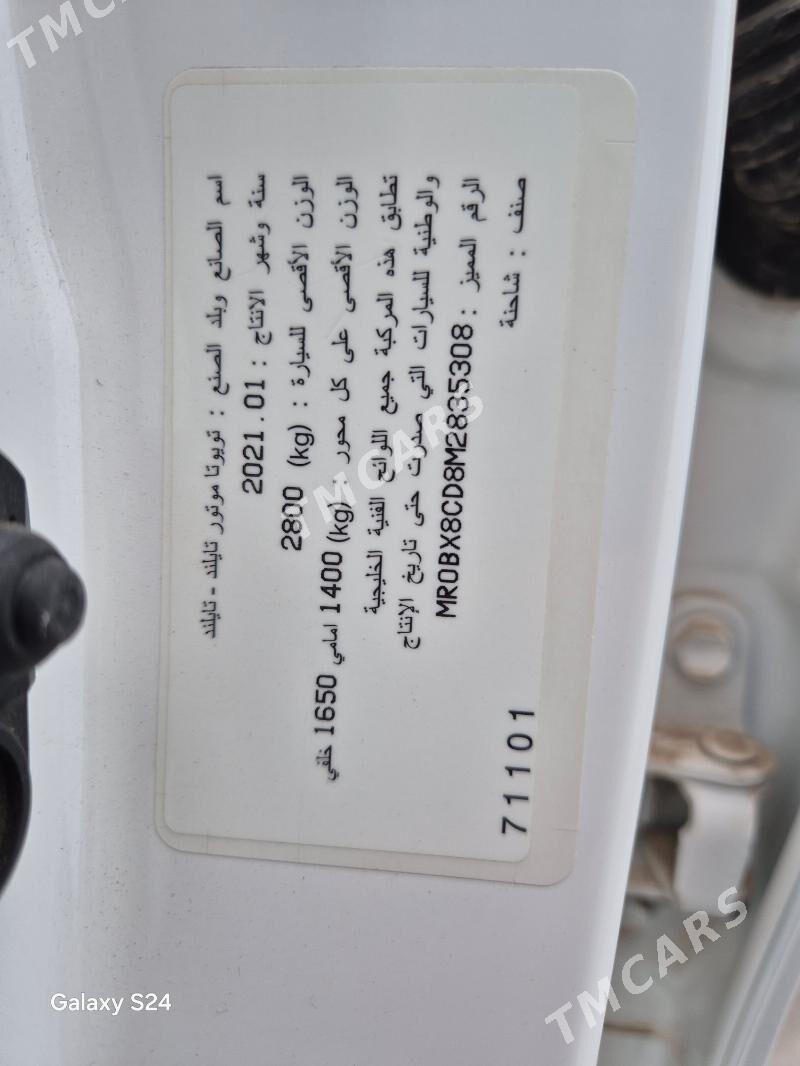 اسم الصانع وبلد الصنع : تويوتا موتور تايلند - تايلند
سنة وشهر الانتاج : 2021.01
الوزن الأقصى للسيارة : (kg) 2800
الوزن الأقصى على كل محور : (kg) 1400 امامي 1650 خلفي
تطابق هذه المركبة جميع اللوائح الفنية الخليجية
والوطنية للسيارات التي صدرت حتى تاريخ الإنتاج
الرقم المميز : MR0BX8CD8M2835308
صنف : شاحنة
711101
TMCARS
TMCARS
TMCARS
Galaxy S24